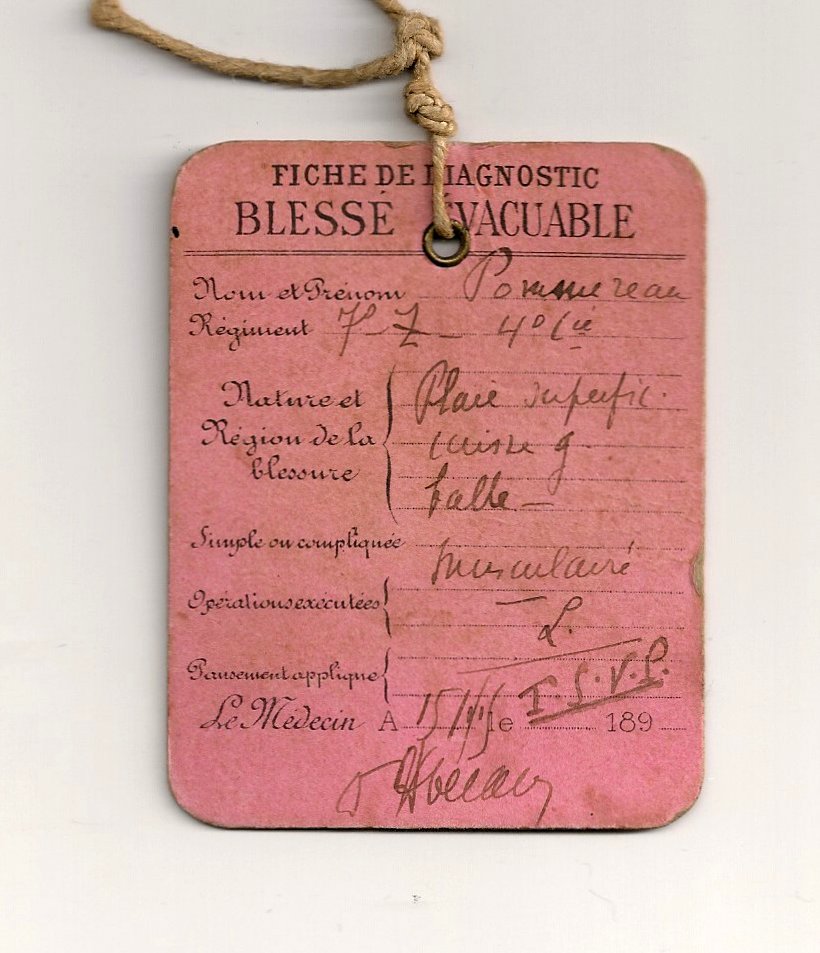 FICHE DE DIAGNOSTIC
BLESSÉ ÉVACUABLE
Nom et Prénom Pommereau
Régiment 7e Z 4e Cie
Nature et Région de la blessure Plaie superfic.
cuisse g
balle —
Simple ou compliquée
musculaire
Opérations exécutées —
L.
Pansement appliqué T.S.V.P.
Le Médecin A 15 le 189